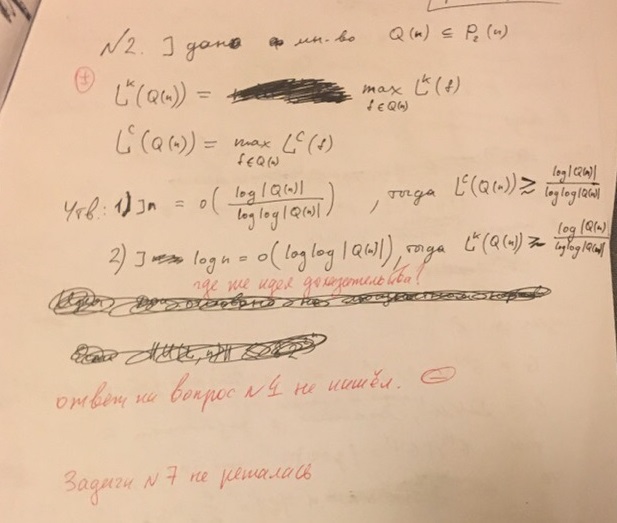 №2. ] дано мн-во Q(n) ⊆ P₂(n)
±
L^K(Q(n)) = max_{f∈Q(n)} L^K(f)
L^C(Q(n)) = max_{f∈Q(n)} L^C(f)
Утв.: 1) ] n = o( log|Q(n)| / log log|Q(n)| ), тогда L^C(Q(n)) ≳ log|Q(n)| / log log|Q(n)|
2) ] log n = o(log log |Q(n)|), тогда L^K(Q(n)) ≳ log|Q(n)| / log log|Q(n)|
где же идея доказательства?
ответ на вопрос №1 не нашёл. ⊖
Задачи №7 не решалась